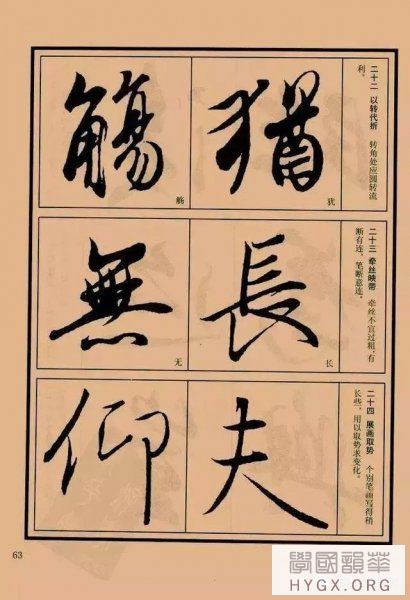 二十二 以转代折 转角处应圆转流
利。
猶
犹
觴
觞
二十三 牵丝映带 牵丝不宜过粗,有
断有连,笔断意连。
長
长
無
无
二十四 展画取势 个别笔画写得稍
长些,用以取势求变化。
夫
仰
63
學國韻華
HYGX.ORG